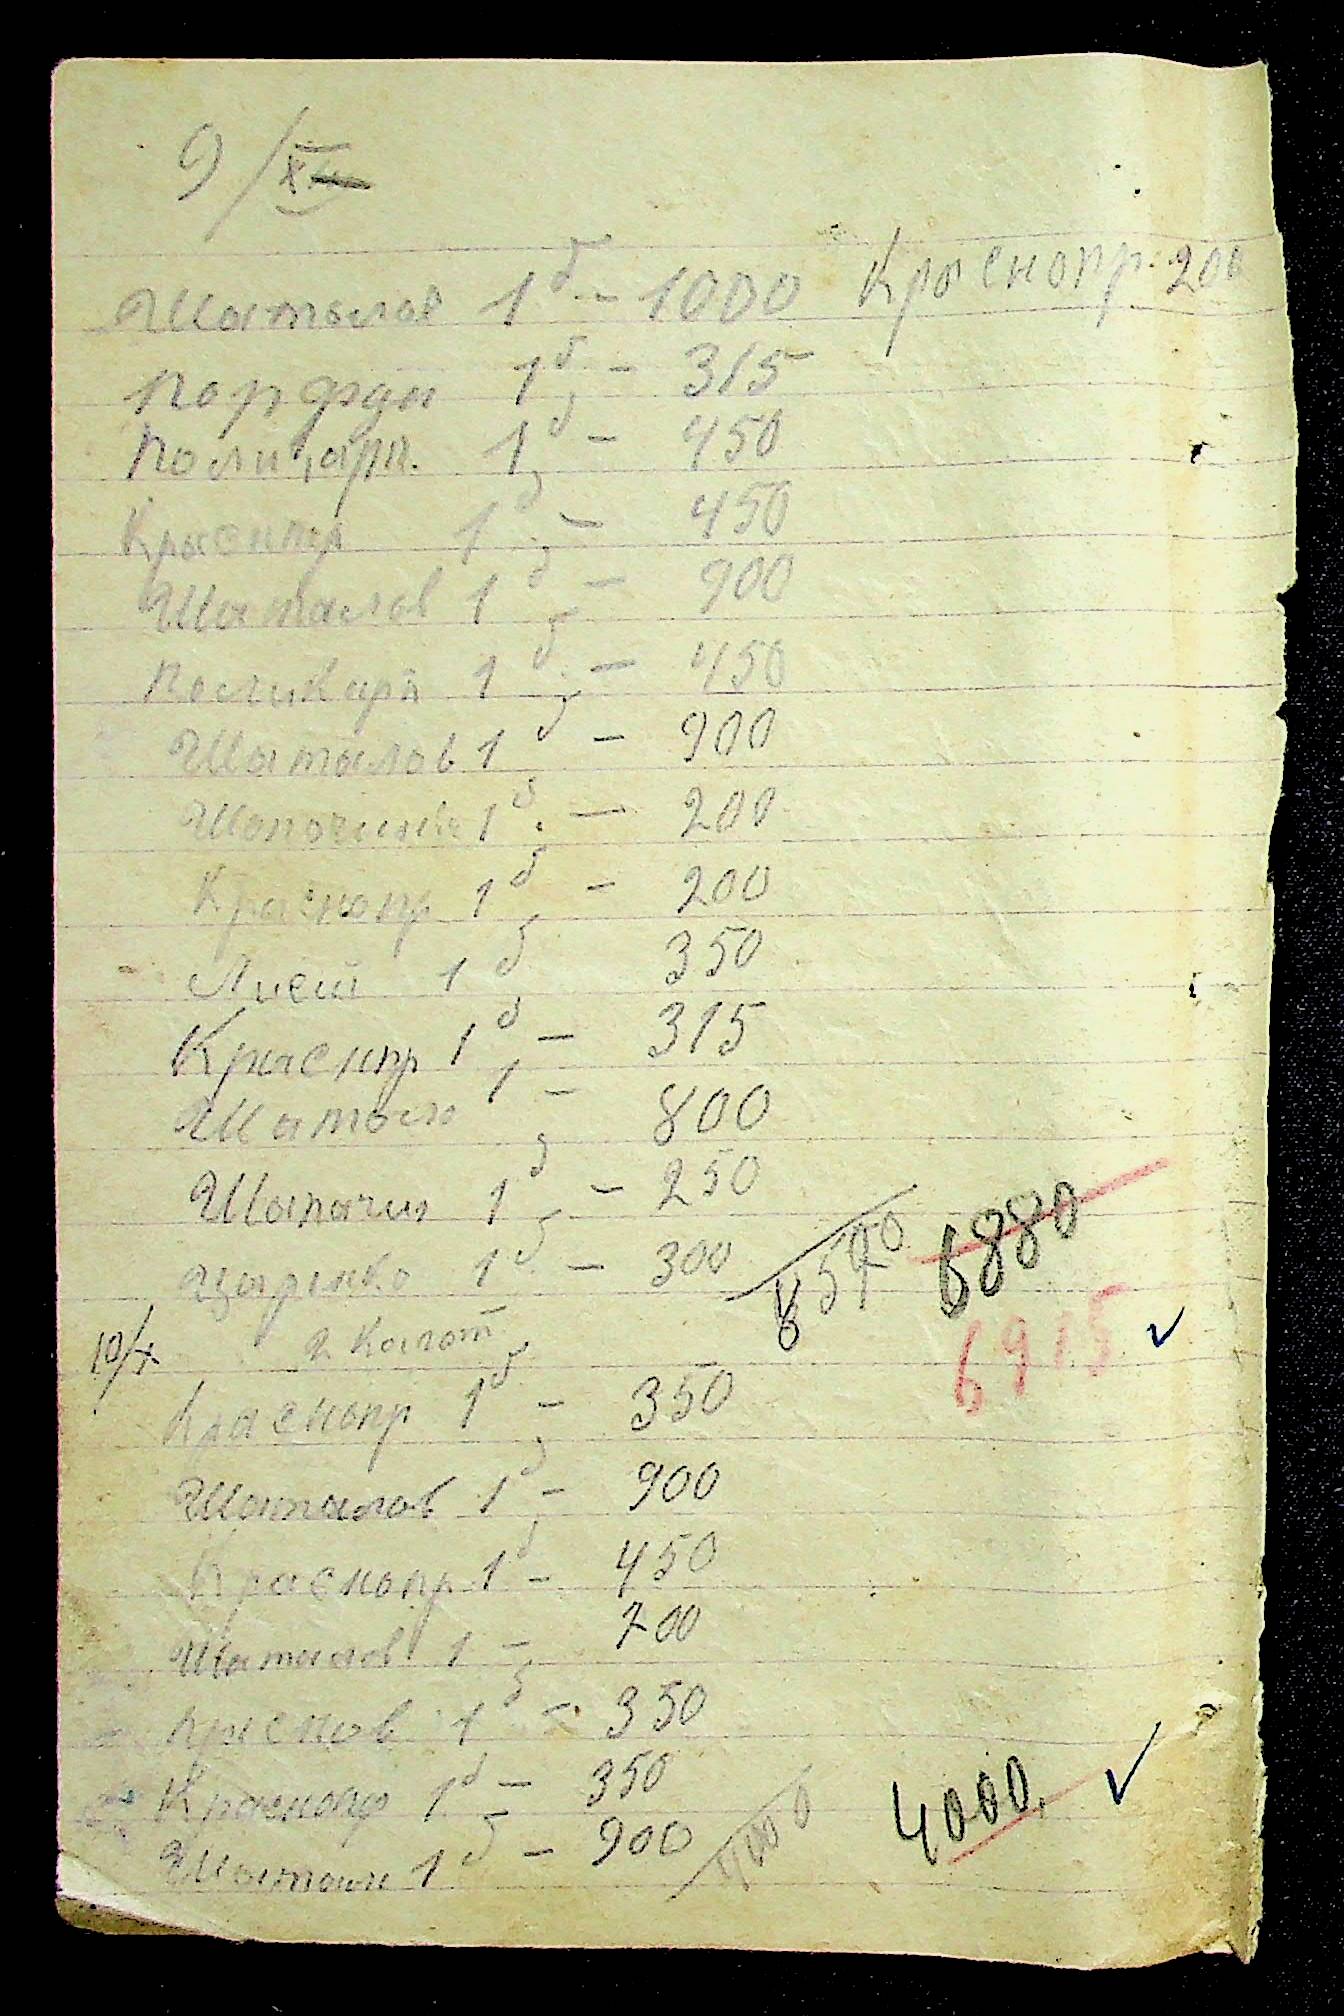 9/X
Шаталов 1б - 1000 Краснопр. 200
Порфди 1б - 315
Поликарп. 1б - 450
Краснпр 1б - 450
Шаталов 1б - 900
Поликарп 1б - 450
Шаталов 1б - 900
1б - 200
Краснопр 1б - 200
1б 350
Краснпр 1б - 315
Шатал 1 - 800
Шапочил 1б - 250
Царенко 1б - 300 6880
6915 ✓
10/X
Краснопр 1б - 350
Шаталов 1б - 900
Краснопр 1б - 450
Шаталов 1 - 700
1б - 350
Краснопр 1б - 350
1б - 900 4000 4000 ✓